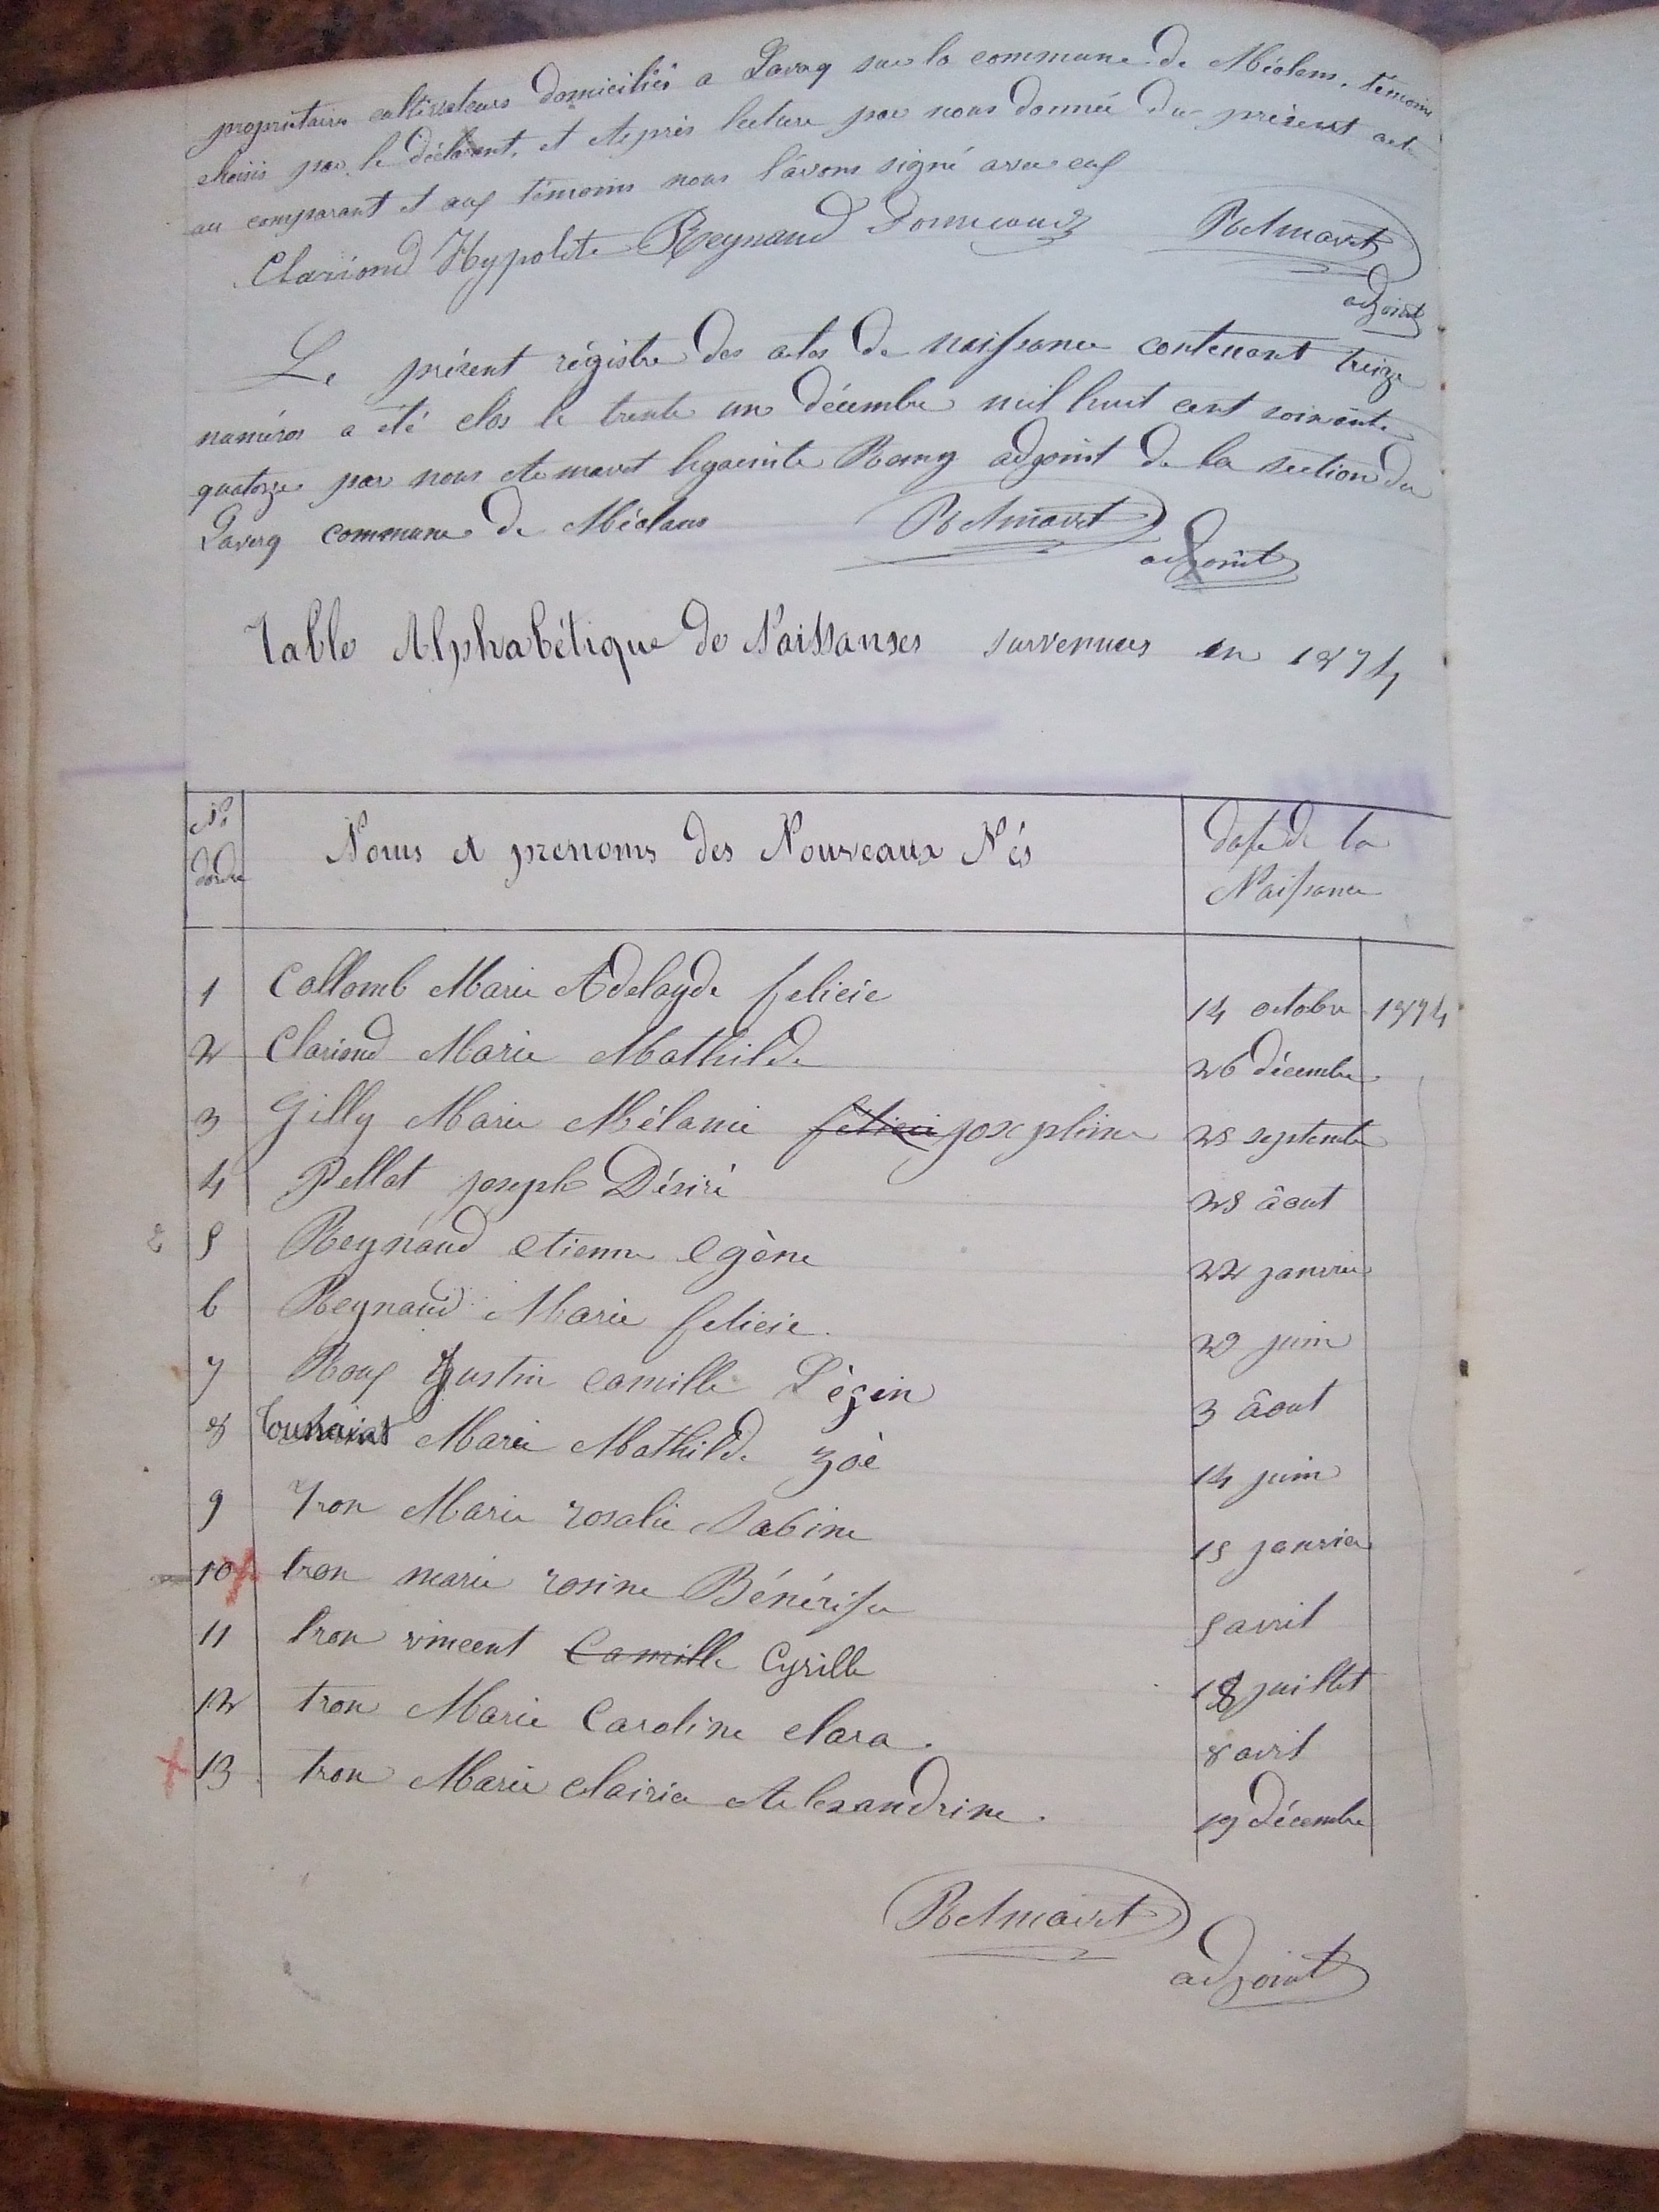 propriétaires cultivateurs domiciliés a Laverq sur la commune de Méolans, témoins
choisis par le déclarant, et Après lecture par nous donnée du présent acte
au comparant et aux témoins nous l'avons signé avec eux
Clariond Hypolite Reynaud RAmavet
adjoint
Le présent régistre des actes de naissance contenant treize
numéros a été clos le trente un décembre mil huit cent soixante
quatorze par nous Amavet hyacinte Remy adjoint de la section du
Laverq commune de Méolans RAmavet
adjoint
Table Alphabétique de Naissanses survenues en 1874
No
dordre
Noms et prenoms des Nouveaux Nés
date de la
Naissance
1 Collomb Marie Adelayde felicie 14 octobre 1874
2 Clariond Marie Mathilde 26 décembre
3 Gilly Marie Mélanie felicie josephine 28 septembre
4 Pellat joseph Désiré 28 âout
5 Reynaud etienne egène 22 janvier
6 Reynaud Marie felicie 29 juin
7 Roux Justin camille 3 âout
8 Toussaint Marie Mathilde zoè 14 juin
9 Tron Marie rosalie Sabine 15 janvier
10 tron marie rosine 5 avril
11 tron vincent Camille Cyrille 18 juillet
12 tron Marie Caroline clara. 8 avril
13 tron Marie Alexandrine. 19 décembre
RAmavet
adjoint